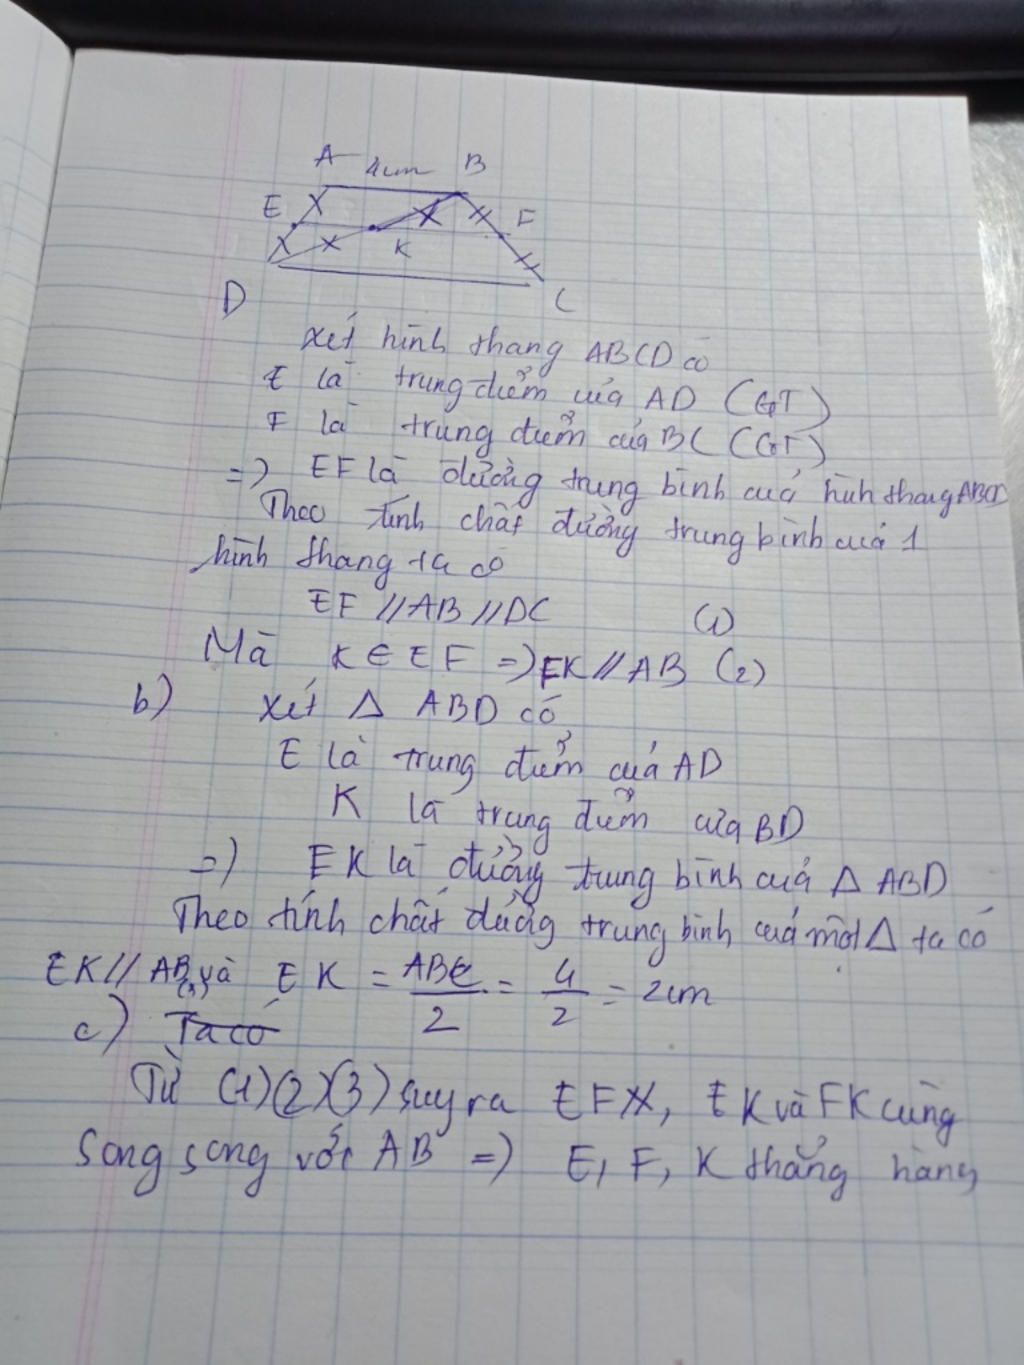 A 4cm B
E F
K
D C
Xét hình thang ABCD có
E là trung điểm của AD (GT)
F là trung điểm của BC (GT)
=> EF là đường trung bình của hình thang ABCD
Theo tính chất đường trung bình của 1
hình thang ta có
EF // AB // DC (1)
Mà K ∈ EF => EK // AB (2)
b) Xét Δ ABD có
E là trung điểm của AD
K là trung điểm của BD
=> EK là đường trung bình của Δ ABD
Theo tính chất đường trung bình của một Δ ta có
EK // AB và EK = AB/2 = 4/2 = 2cm
c) Ta có
Từ (1)(2)(3) suy ra EF, EK và FK cùng
song song với AB => E, F, K thẳng hàng